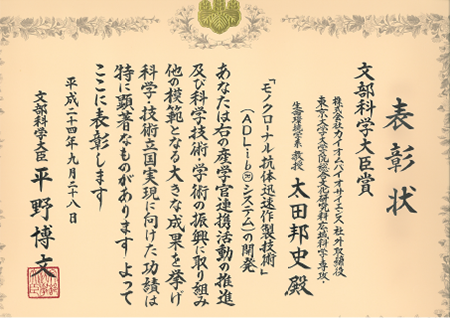 表彰状
文部科学大臣賞
株式会社カイオムバイオサイエンス社外取締役
東京大学大学院総合文化研究科広域科学専攻・
生命環境学系 教授 太田邦史殿
「モノクローナル抗体迅速作製技術」
(ADLibⓇシステム)の開発
あなたは右の産学官連携活動の推進
及び科学技術・学術の振興に取り組み
他の模範となる大きな成果を挙げ
科学・技術立国実現に向けた功績は
特に顕著なものがあります よって
ここに表彰します
平成二十四年九月二十八日
文部科学大臣 平野博文